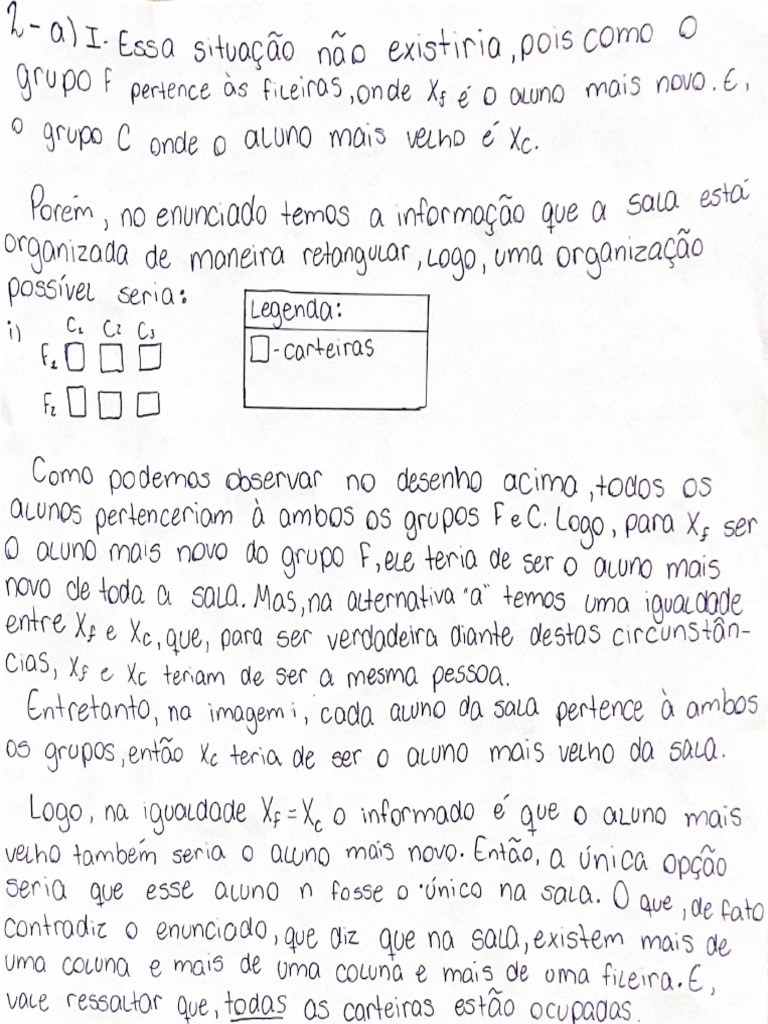 2-a) I. Essa situação não existiria, pois como o
grupo F pertence às fileiras, onde Xf é o aluno mais novo. E,
o grupo C onde o aluno mais velho é Xc.
Porém, no enunciado temos a informação que a sala está
organizada de maneira retangular, logo, uma organização
possível seria:
Legenda:
□-carteiras
i) C1 C2 C3
F1 □ □ □
F2 □ □ □
Como podemos observar no desenho acima, todos os
alunos pertenceriam à ambos os grupos F e C. Logo, para Xf ser
o aluno mais novo do grupo F, ele teria de ser o aluno mais
novo de toda a sala. Mas, na alternativa "a" temos uma igualdade
entre Xf e Xc, que, para ser verdadeira diante destas circunstân-
cias, Xf e Xc teriam de ser a mesma pessoa.
Entretanto, na imagem i, cada aluno da sala pertence à ambos
os grupos, então Xc teria de ser o aluno mais velho da sala.
Logo, na igualdade Xf = Xc o informado é que o aluno mais
velho também seria o aluno mais novo. Então, a única opção
seria que esse aluno n fosse o único na sala. O que, de fato
contradiz o enunciado, que diz que na sala, existem mais de
uma coluna e mais de uma coluna e mais de uma fileira. E,
vale ressaltar que, todas as carteiras estão ocupadas.